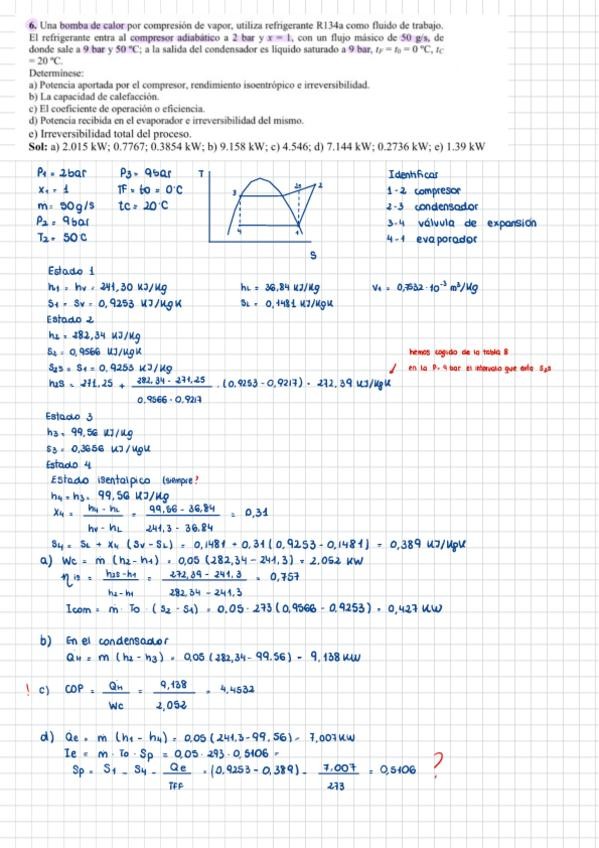 6. Una bomba de calor por compresión de vapor, utiliza refrigerante R134a como fluido de trabajo.
El refrigerante entra al compresor adiabático a 2 bar y x = 1, con un flujo másico de 50 g/s, de
donde sale a 9 bar y 50 ºC; a la salida del condensador es líquido saturado a 9 bar, tF = t0 = 0 ºC, tC
= 20 ºC.
Determínese:
a) Potencia aportada por el compresor, rendimiento isoentrópico e irreversibilidad.
b) La capacidad de calefacción.
c) El coeficiente de operación o eficiencia.
d) Potencia recibida en el evaporador e irreversibilidad del mismo.
e) Irreversibilidad total del proceso.
Sol: a) 2.015 kW; 0.7767; 0.3854 kW; b) 9.158 kW; c) 4.546; d) 7.144 kW; 0.2736 kW; e) 1.39 kW
P1 = 2bar
P3 = 9bar
T
Identificar
x1 = 1
TF = to = 0ºC
1-2 compresor
m = 50g/s
tc = 20ºC
2-3 condensador
P2 = 9bar
3-4 válvula de expansión
T2 = 50ºC
4-1 evaporador
3
2s
2
4
1
S
Estado 1
h1 = hv = 241,30 KJ/Kg
hL = 36,84 KJ/Kg
S1 = Sv = 0,9253 KJ/KgK
SL = 0,1481 KJ/KgK
Estado 2
h2 = 282,34 KJ/Kg
S2 = 0,9566 KJ/KgK
S2s = S1 = 0,9253 KJ/KgK
hemos cogido de la tabla B
en la P= 9 bar el intervalo que esta S2s
h2s = 271,25 + 282,34 - 271,25 / 0,9566 - 0,9217 · (0,9253 - 0,9217) = 272,39 KJ/KgK
Estado 3
h3 = 99,56 KJ/Kg
S3 = 0,3656 KJ/KgK
Estado 4
Estado isentalpico (siempre!
h4 = h3 = 99,56 KJ/Kg
x4 = h4 - hL / hv - hL = 99,56 - 36,84 / 241,3 - 36,84 = 0,31
S4 = SL + x4 (Sv - SL) = 0,1481 + 0,31 (0,9253 - 0,1481) = 0,389 KJ/KgK
a) Wc = m (h2 - h1) = 0,05 (282,34 - 241,3) = 2,052 KW
η is = h2s - h1 / h2 - h1 = 272,39 - 241,3 / 282,34 - 241,3 = 0,757
Icom = m · To · (S2 - S1) = 0,05 · 273 (0,9566 - 0,9253) = 0,427 KW
b) En el condensador
QH = m (h2 - h3) = 0,05 (282,34 - 99,56) = 9,138 KW
! c) COP = QH / Wc = 9,138 / 2,052 = 4,4532
d) Qe = m (h1 - h4) = 0,05 (241,3 - 99,56) = 7,007 KW
Ie = m · To · Sp = 0,05 · 293 · 0,5106 =
Sp = S1 - S4 - Qe / TFF = (0,9253 - 0,389) - 7,007 / 273 = 0,5106 ?